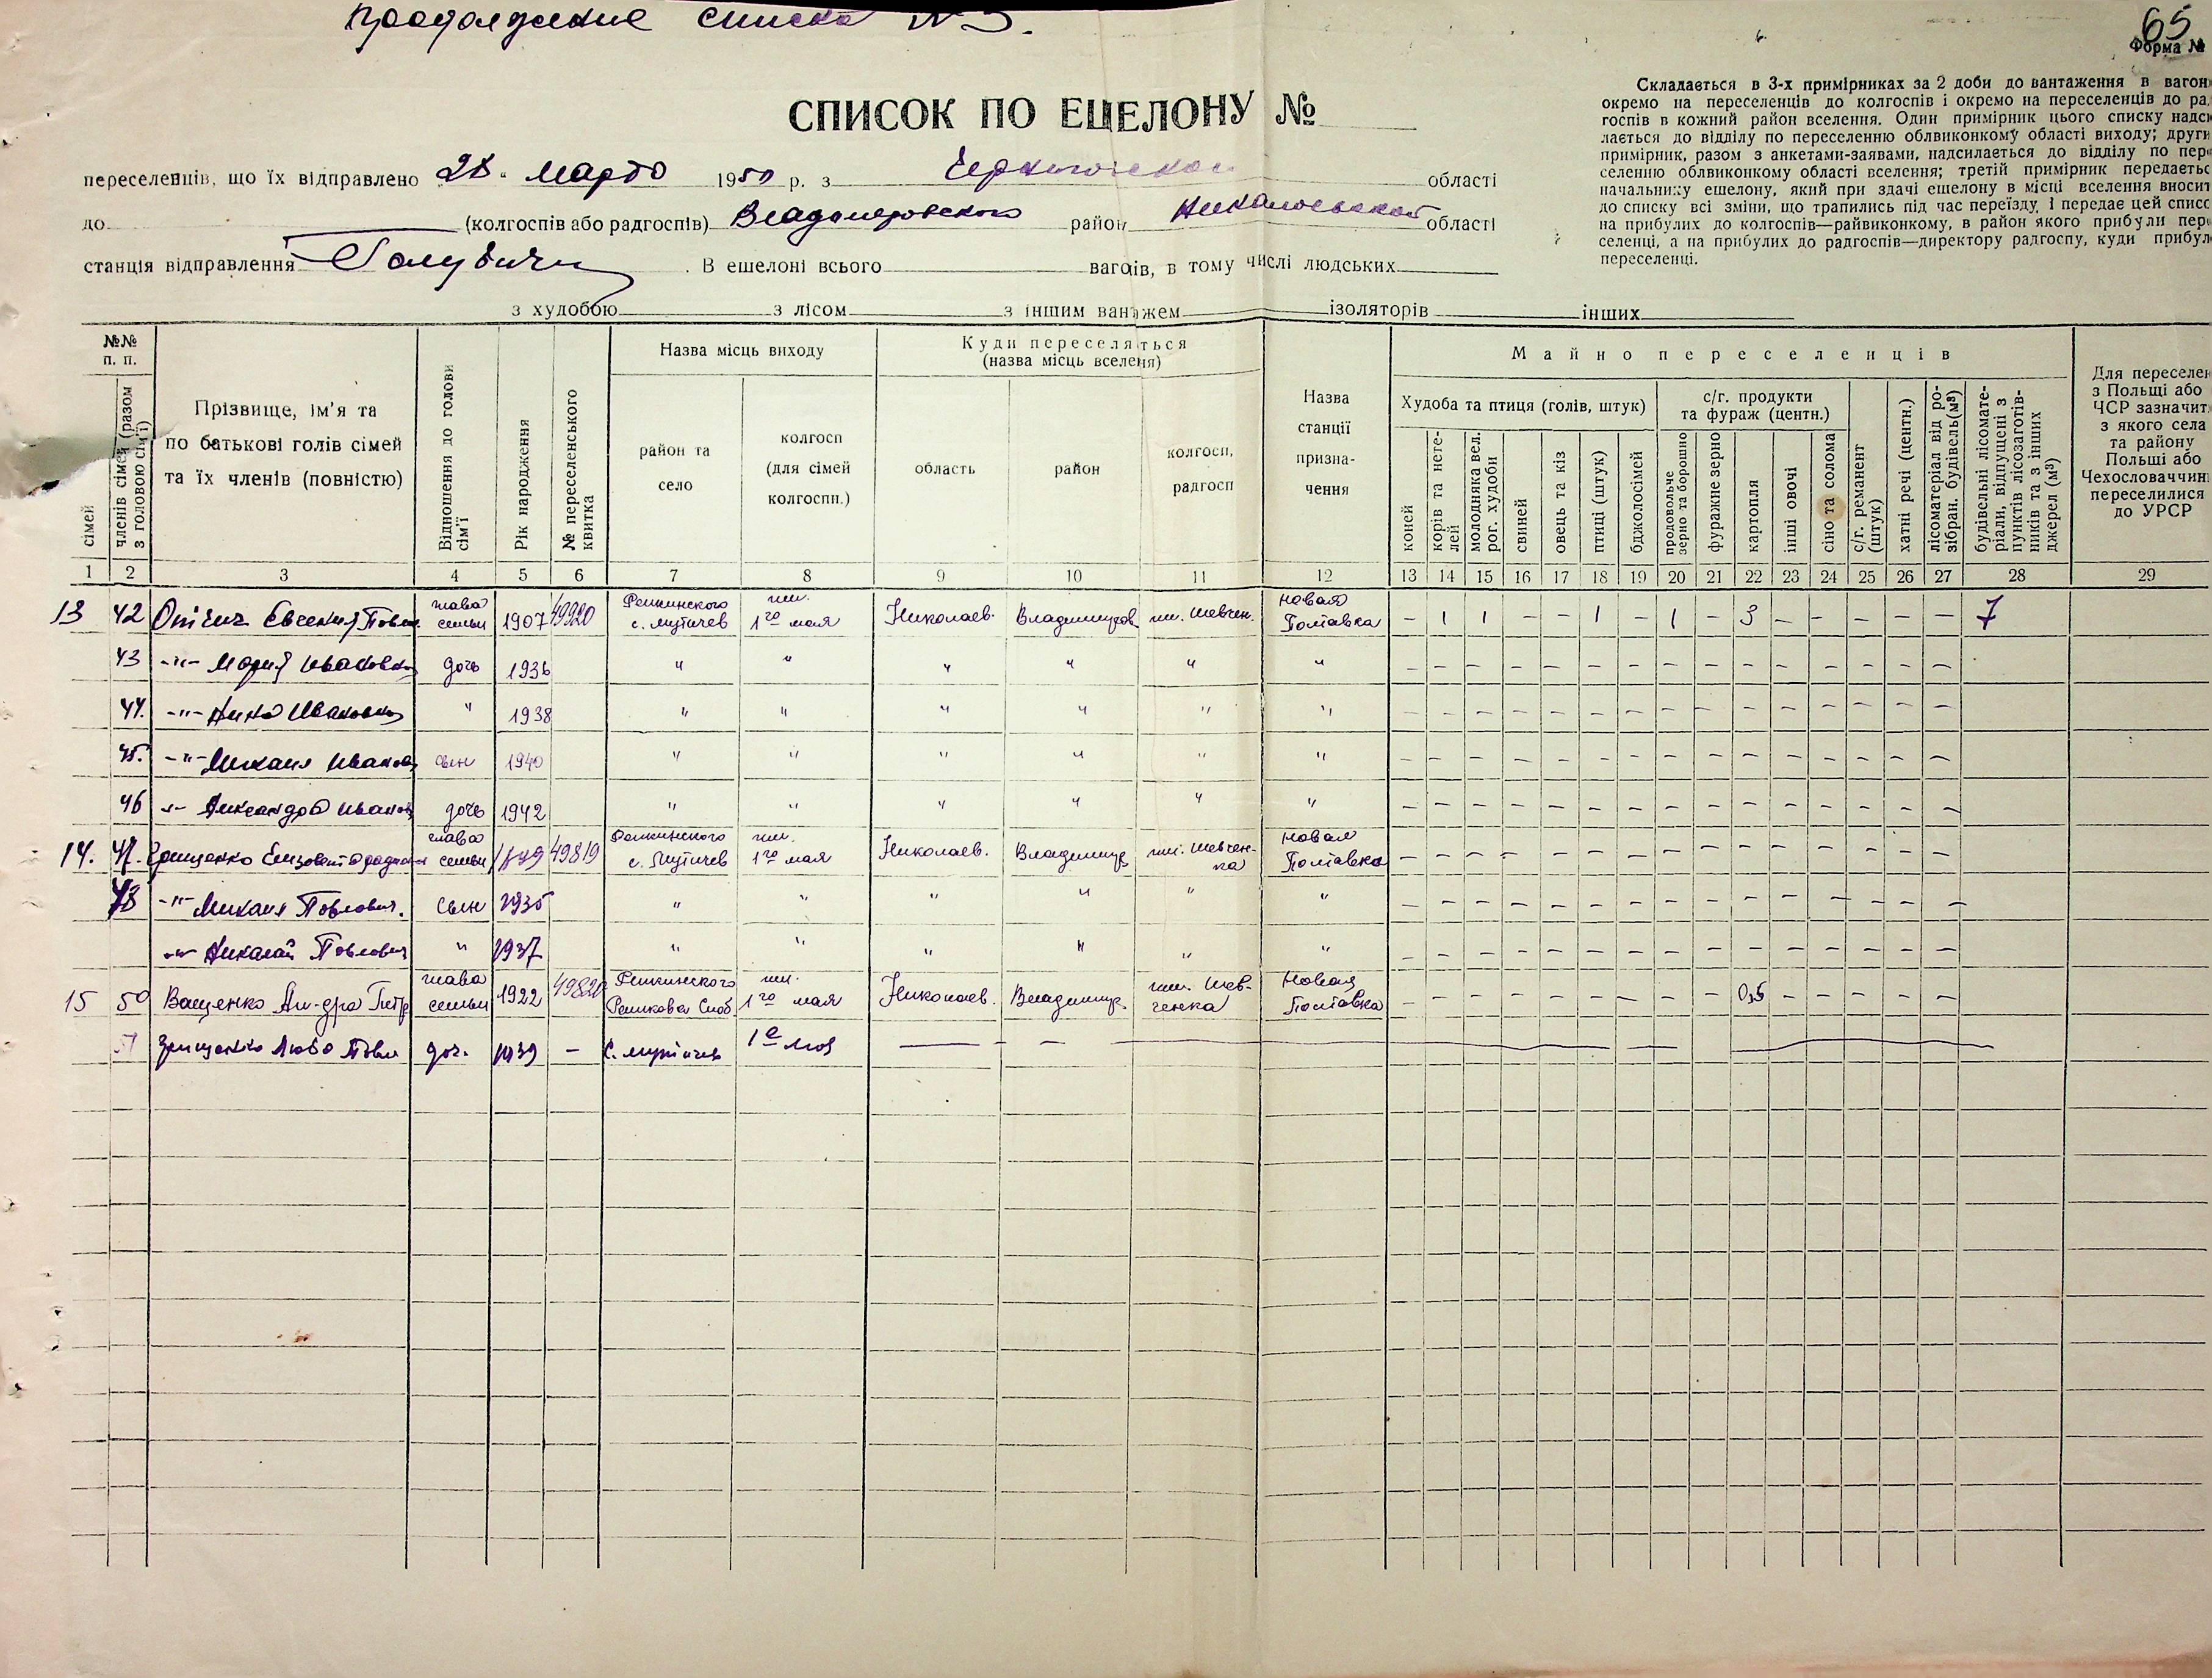 Продолжение списка № 3.
65
Форма №
СПИСОК ПО ЕШЕЛОНУ №
Складається в 3-х примірниках за 2 доби до вантаження в вагон
окремо на переселенців до колгоспів і окремо на переселенців до ра
госпів в кожний район вселення. Один примірник цього списку надси
лається до відділу по переселенню облвиконкому області виходу; други
примірник, разом з анкетами-заявами, надсилається до відділу по пере
селенню облвиконкому області вселення; третій примірник передаєтьс
начальнику ешелону, який при здачі ешелону в місці вселення вносит
до списку всі зміни, що трапились під час переїзду, і передає цей списо
на прибулих до колгоспів—райвиконкому, в район якого прибули пере
селенці, а на прибулих до радгоспів—директору радгоспу, куди прибул
переселенці.
переселенців, що їх відправлено 28 " марта 1950 р. з Черниговской області
до (колгоспів або радгоспів) Владимировского район Николаевской області
станція відправлення Голубичи . В ешелоні всього вагонів, в тому числі людських
з худобою з лісом з іншим вантажем ізоляторів інших
№№ п. п.
сімей
членів сімей (разом з головою сім'ї)
Прізвище, ім'я та
по батькові голів сімей
та їх членів (повністю)
Відношення до голови сім'ї
Рік народження
№ переселенського квитка
Назва місць виходу
район та село
колгосп (для сімей колгоспн.)
Куди переселяться
(назва місць вселеня)
область
район
колгосп, радгосп
Назва станції призна- чення
Майно переселенців
Худоба та птиця (голів, штук)
коней
корів та нете- лей
молодняка вел. рог. худоби
свиней
овець та кіз
птиці (штук)
бджолосімей
с/г. продукти та фураж (центн.)
продовольче зерно та борошно
фуражне зерно
картопля
інші овочі
сіно та солома
с/г. реманент (штук)
хатні речі (центн.)
лісоматеріал від ро- зібран. будівель (м³)
будівельні лісомате- ріали, відпущені з пунктів лісозаготів- ників та з інших джерел (м³)
Для переселен
з Польщі або
ЧСР зазначит
з якого села
та району
Польщі або
Чехословаччин
переселилися
до УРСР
1 2 3 4 5 6 7 8 9 10 11 12 13 14 15 16 17 18 19 20 21 22 23 24 25 26 27 28 29
13 42 Евгения Павл. глава семьи 1907 49920 Репкинского с. Мутичев им. 1го мая Николаев. Владимиров им. Шевчен. Новая Полтавка — 1 1 — — 1 — 1 — 3 — — — — — 7
43 -"- Мария Ивановна дочь 1936 " " " " " " — — — — — — — — — — — — — — —
44. -"- Нина Ивановна " 1938 " " " " " " — — — — — — — — — — — — — — —
45. -"- Михаил Иванов сын 1940 " " " " " " — — — — — — — — — — — — — — —
46 -"- Александра Иванов дочь 1942 " " " " " " — — — — — — — — — — — — — — —
14. 47. Грищенко Елизовета глава семьи 1899 49819 Репкинского с. Мутичев им. 1го мая Николаев. Владимир. им. Шевчен- ка Новая Полтавка — — — — — — — — — — — — — — —
48 -"- Михаил Павлович. сын 1935 " " " " " " — — — — — — — — — — — — — — —
-"- Николай Павлович " 1937 " " " " " " — — — — — — — — — — — — — — —
15 50 Ващенко Ал-дра Петр глава семьи 1922 49820 Репкинского Репковка Слоб. им. 1го мая Николаев. Владимир. им. Шев- ченка Новая Полтавка — — — — — — — — — 0,5 — — — — —
51 Грищенко Люба Павл доч. 1939 — с. Мутичев 1е мая —